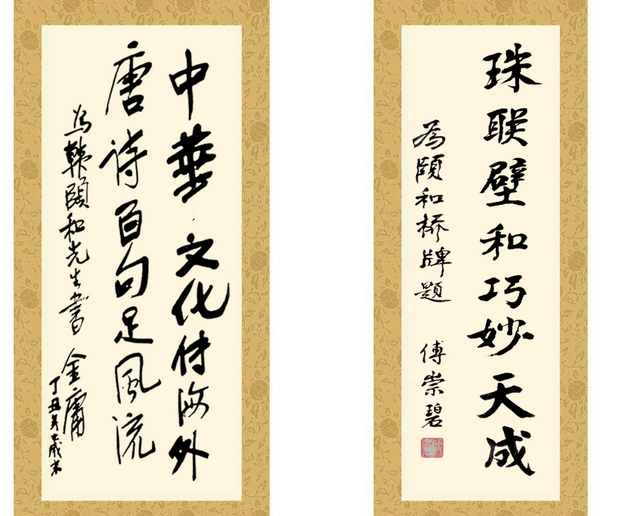 中華文化传海外
唐诗百句足風流
为韩頤和先生書
金庸
丁丑年歲末
珠联壁和巧妙天成
為頤和桥牌題
傅崇碧